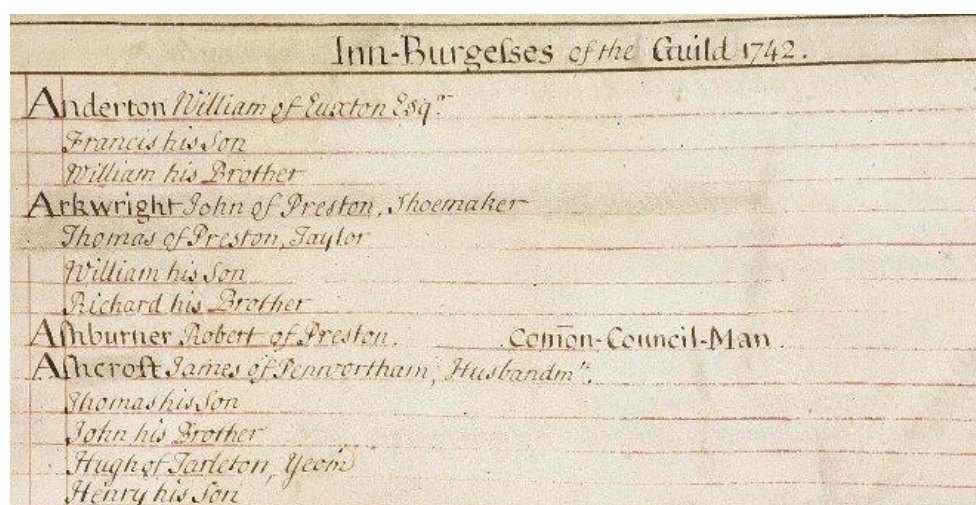 Inn-Burgeſses of the Guild 1742.
Anderton William of Euxton Esqr.
Francis his Son
William his Brother
Arkwright John of Preston, Shoemaker
Thomas of Preston, Taylor
William his Son
Richard his Brother
Aſhburner Robert of Preston. Com̄on-Council-Man.
Aſhcroft James of Penwortham, Husbandmn.
Thomas his Son
John his Brother
Hugh of Tarleton, Yeom
Henry his Son